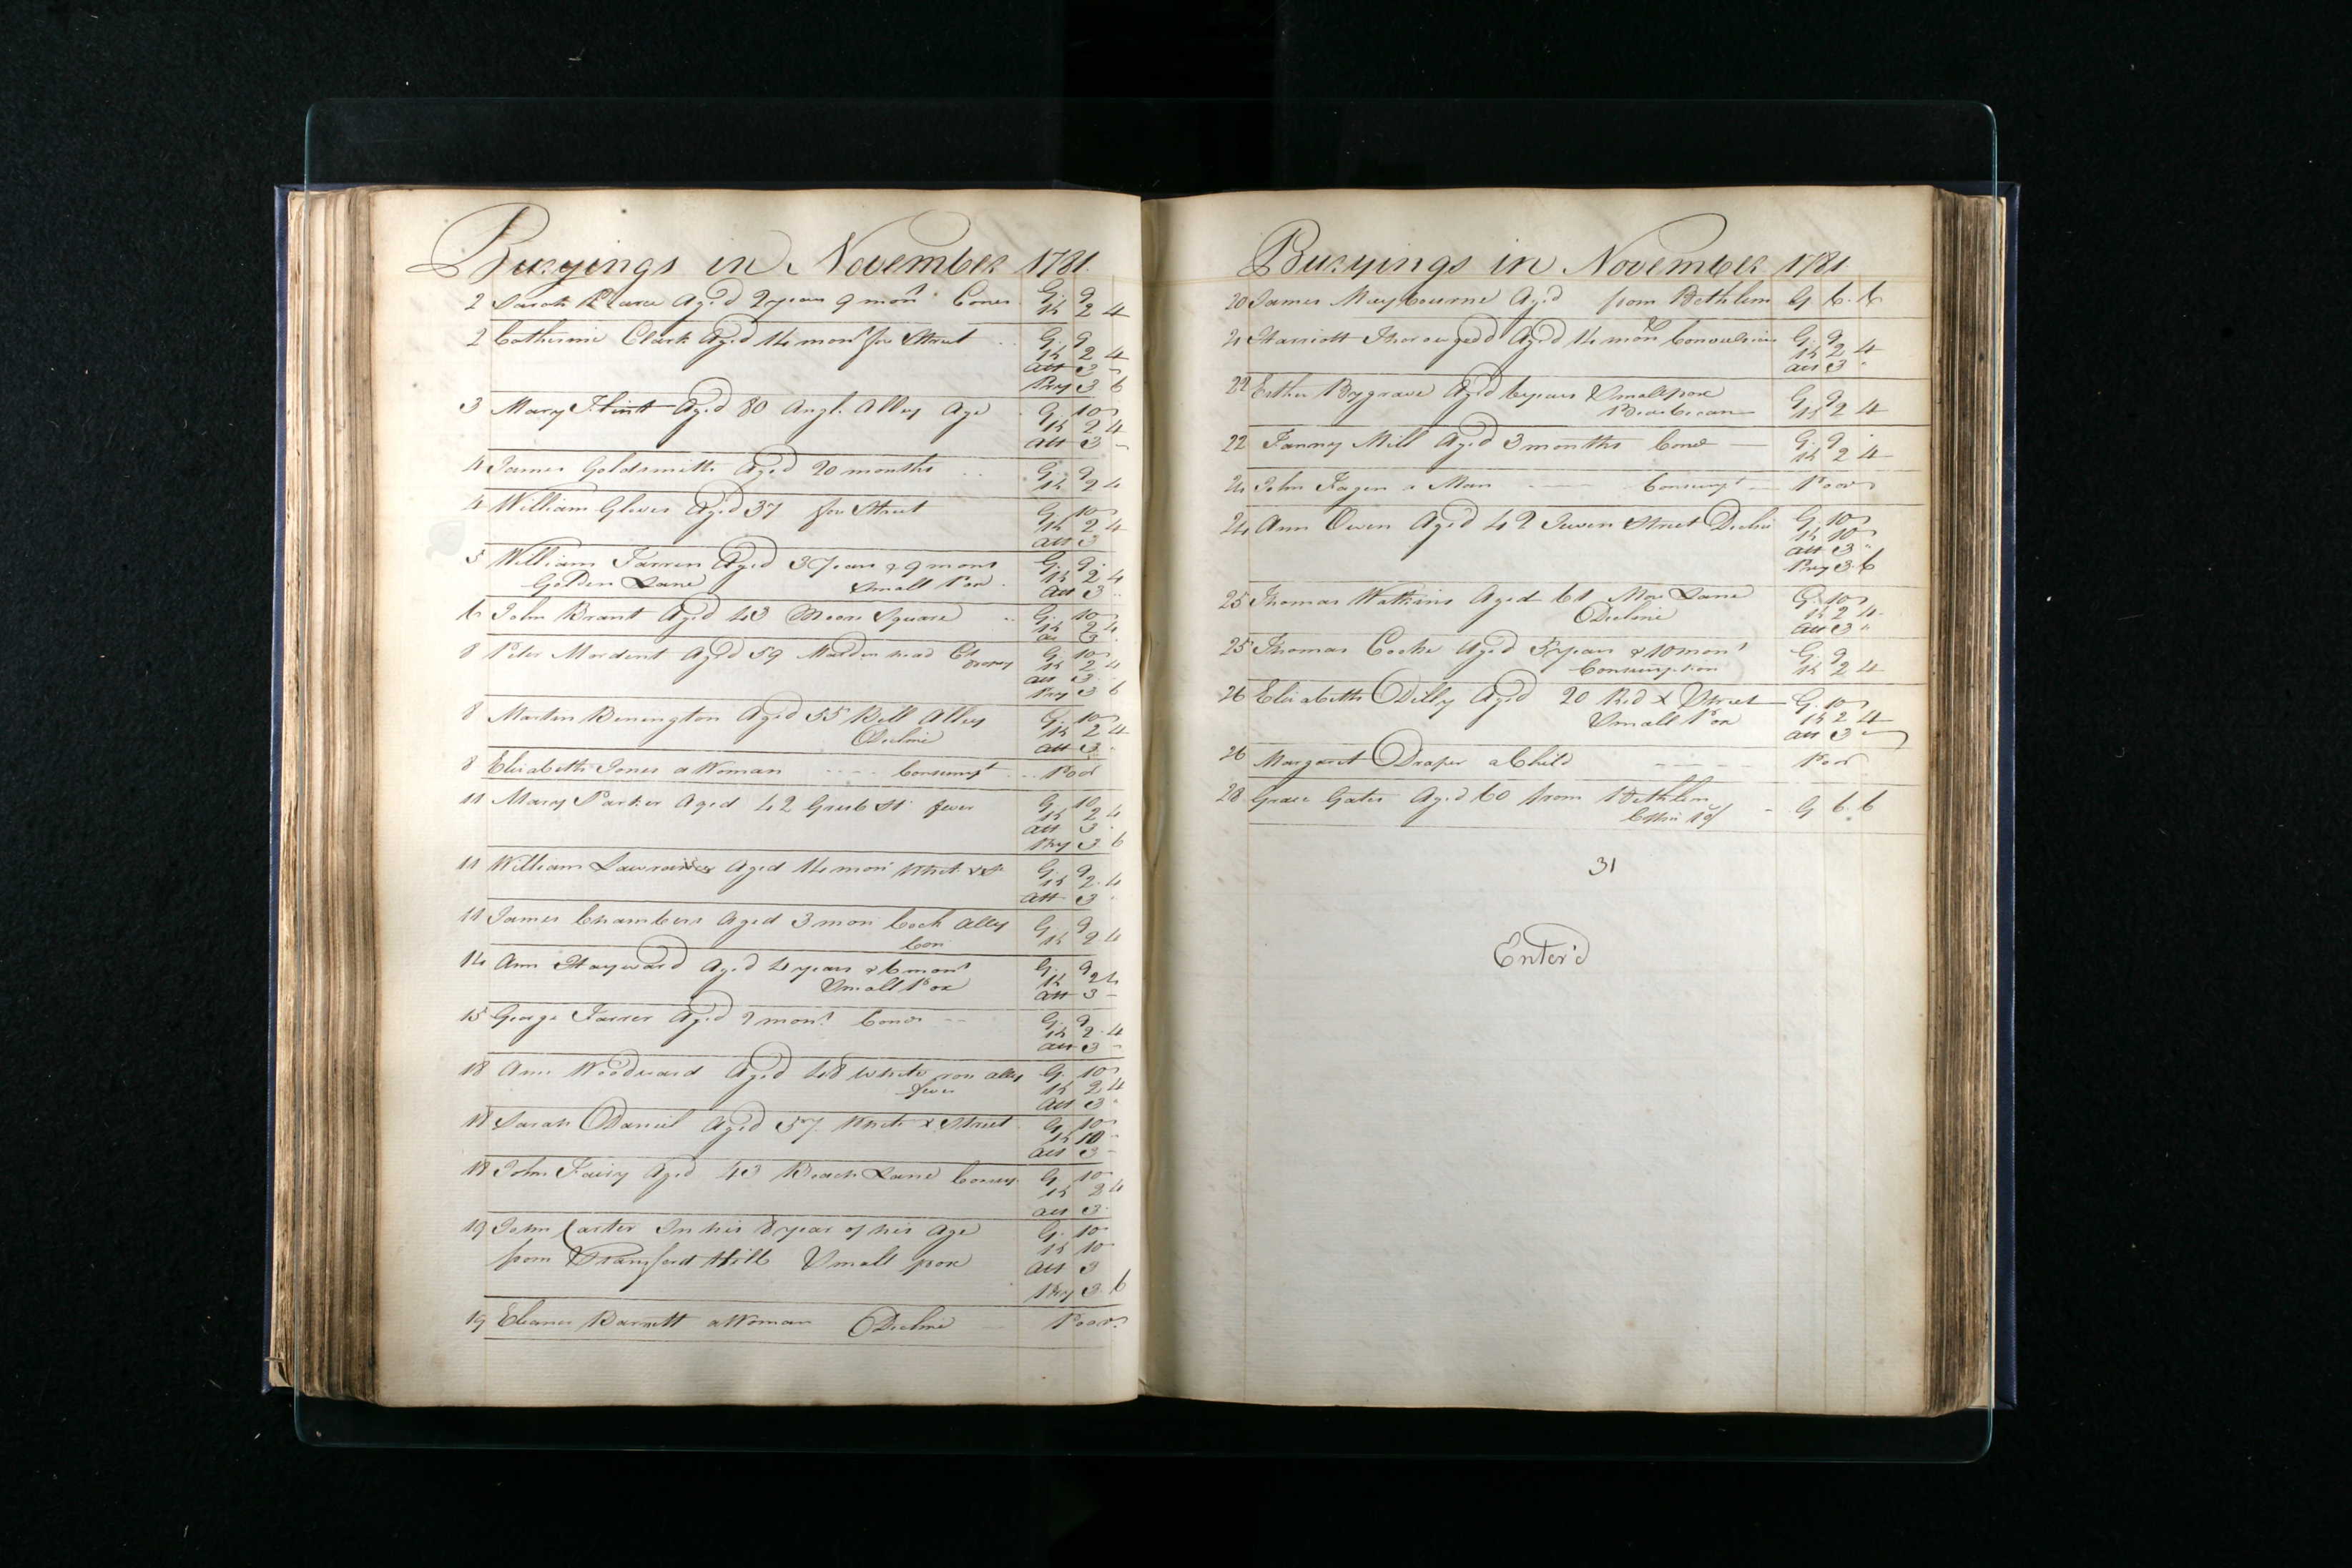 Buryings in November 1781
2 Sarah Pearce Aged 2 years 9 mon. Conv G. 9
K 2 4
2 Catherine Clark Aged 14 mon. fore Street G. 9
K 2 4
att 3
Pry 3 6
3 Mary Flintt Aged 80 Angl. Alley Age G. 10
K 2 4
att 3
4 James Goldsmith Aged 20 months G. 9
K 2 4
4 William Glover Aged 37 fore Street G. 10
K 2 4
att 3
5 William Farren Aged 3 Years & 9 mons G. 9
Golden Lane Small Pox K 2 4
att 3
6 John Brant Aged 43 Moore Square G. 10
K 2 4
att 3
8 Peter Mordent Aged 59 Maiden head Ct G. 10
K 2 4
att 3
Pry 3 6
8 Martin Benington Aged 55 Bell Alley G. 10
Decline K 2 4
att 3
8 Elizabeth Jones a Woman Consumpt Poor
11 Mary Parker Aged 42 Grub St. fever G. 10
K 2 4
att 3
Pry 3 6
11 William Lawrance Aged 14 mon. G. 9
K 2 4
att 3
11 James Chambers Aged 3 mon. Cock Alley G. 9
Con K 2 4
14 Ann Hayward Aged 4 years & 6 mont G. 9
Small Pox K 2 4
att 3
15 George Farrer Aged 2 mont. Conv G. 9
K 2 4
att 3
18 Ann Woodward Aged 48 White alley G. 10
fever K 2 4
att 3
18 Sarah Daniel Aged 57 White x Street G. 10
K 10
att 3
18 John Fairy Aged 43 Beach Lane G. 10
K 2 4
att 3
19 John Carter In his 8 year of his Age G. 10
from Hill Small pox K 10
att 3
Pry 3 6
19 Eleanor Barnett a Woman Decline Poor
Buryings in November 1781
20 James Maybourne Aged from Bethlem G 6. 6
21 Harriott Aged 14 mon Convulsions G. 9
K 2 4
att 3
22 Esther Bygrave Aged 6 years Smallpox G. 9
Barbican K 2 4
22 Fanney Mill Aged 3 months Conv G. 9
K 2 4
24 John Fagen a Man Consumpt Poor
24 Ann Owen Aged 42 Jewen Street Decline G. 10
K 10
att 3
Pry 3. 6
25 Thomas Watkins Aged 61 Mor Lane G. 10
Decline K 2 4
att 3
25 Thomas Cooke Aged 5 years & 10 mont G. 9
Consumption K 2 4
26 Elizabeth Dilly Aged 20 Red x Street G. 10
Small Pox K 2 4
att 3
26 Margaret Draper a Child Poor
28 Grace Gates Aged 60 from Bethlem G 6. 6
31
Enter'd